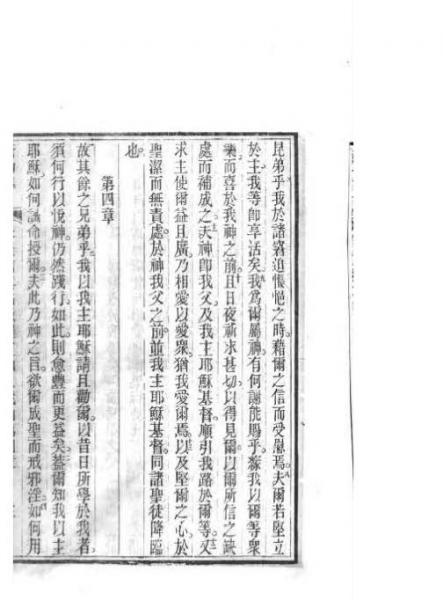 昆弟乎我於諸窘迫悵悒之時藉爾之信而受慰焉夫爾若堅立
於主我等即享活矣我為爾屬神有何謝能馬乎蓋我以爾等衆
樂而喜於我神之前且日夜祈求甚切以得見爾以爾所信之缺
處而補成之夫神即我父及我主耶穌基督順引我路於爾等又
求主使爾益且廣乃相愛以愛衆猶我愛爾焉以及堅爾之心於
聖潔而無責處於神我父之前並我主耶穌基督同諸聖徒降臨
也
第四章
故其餘之兄弟乎我以我主耶穌請且勸爾以昔日所學於我者
須何行以悅神仍然踐行如此則愈豐而更益矣蓋爾知我以主
耶穌如何誡命授爾夫此乃神之旨欲爾成聖而戒邪淫如何用